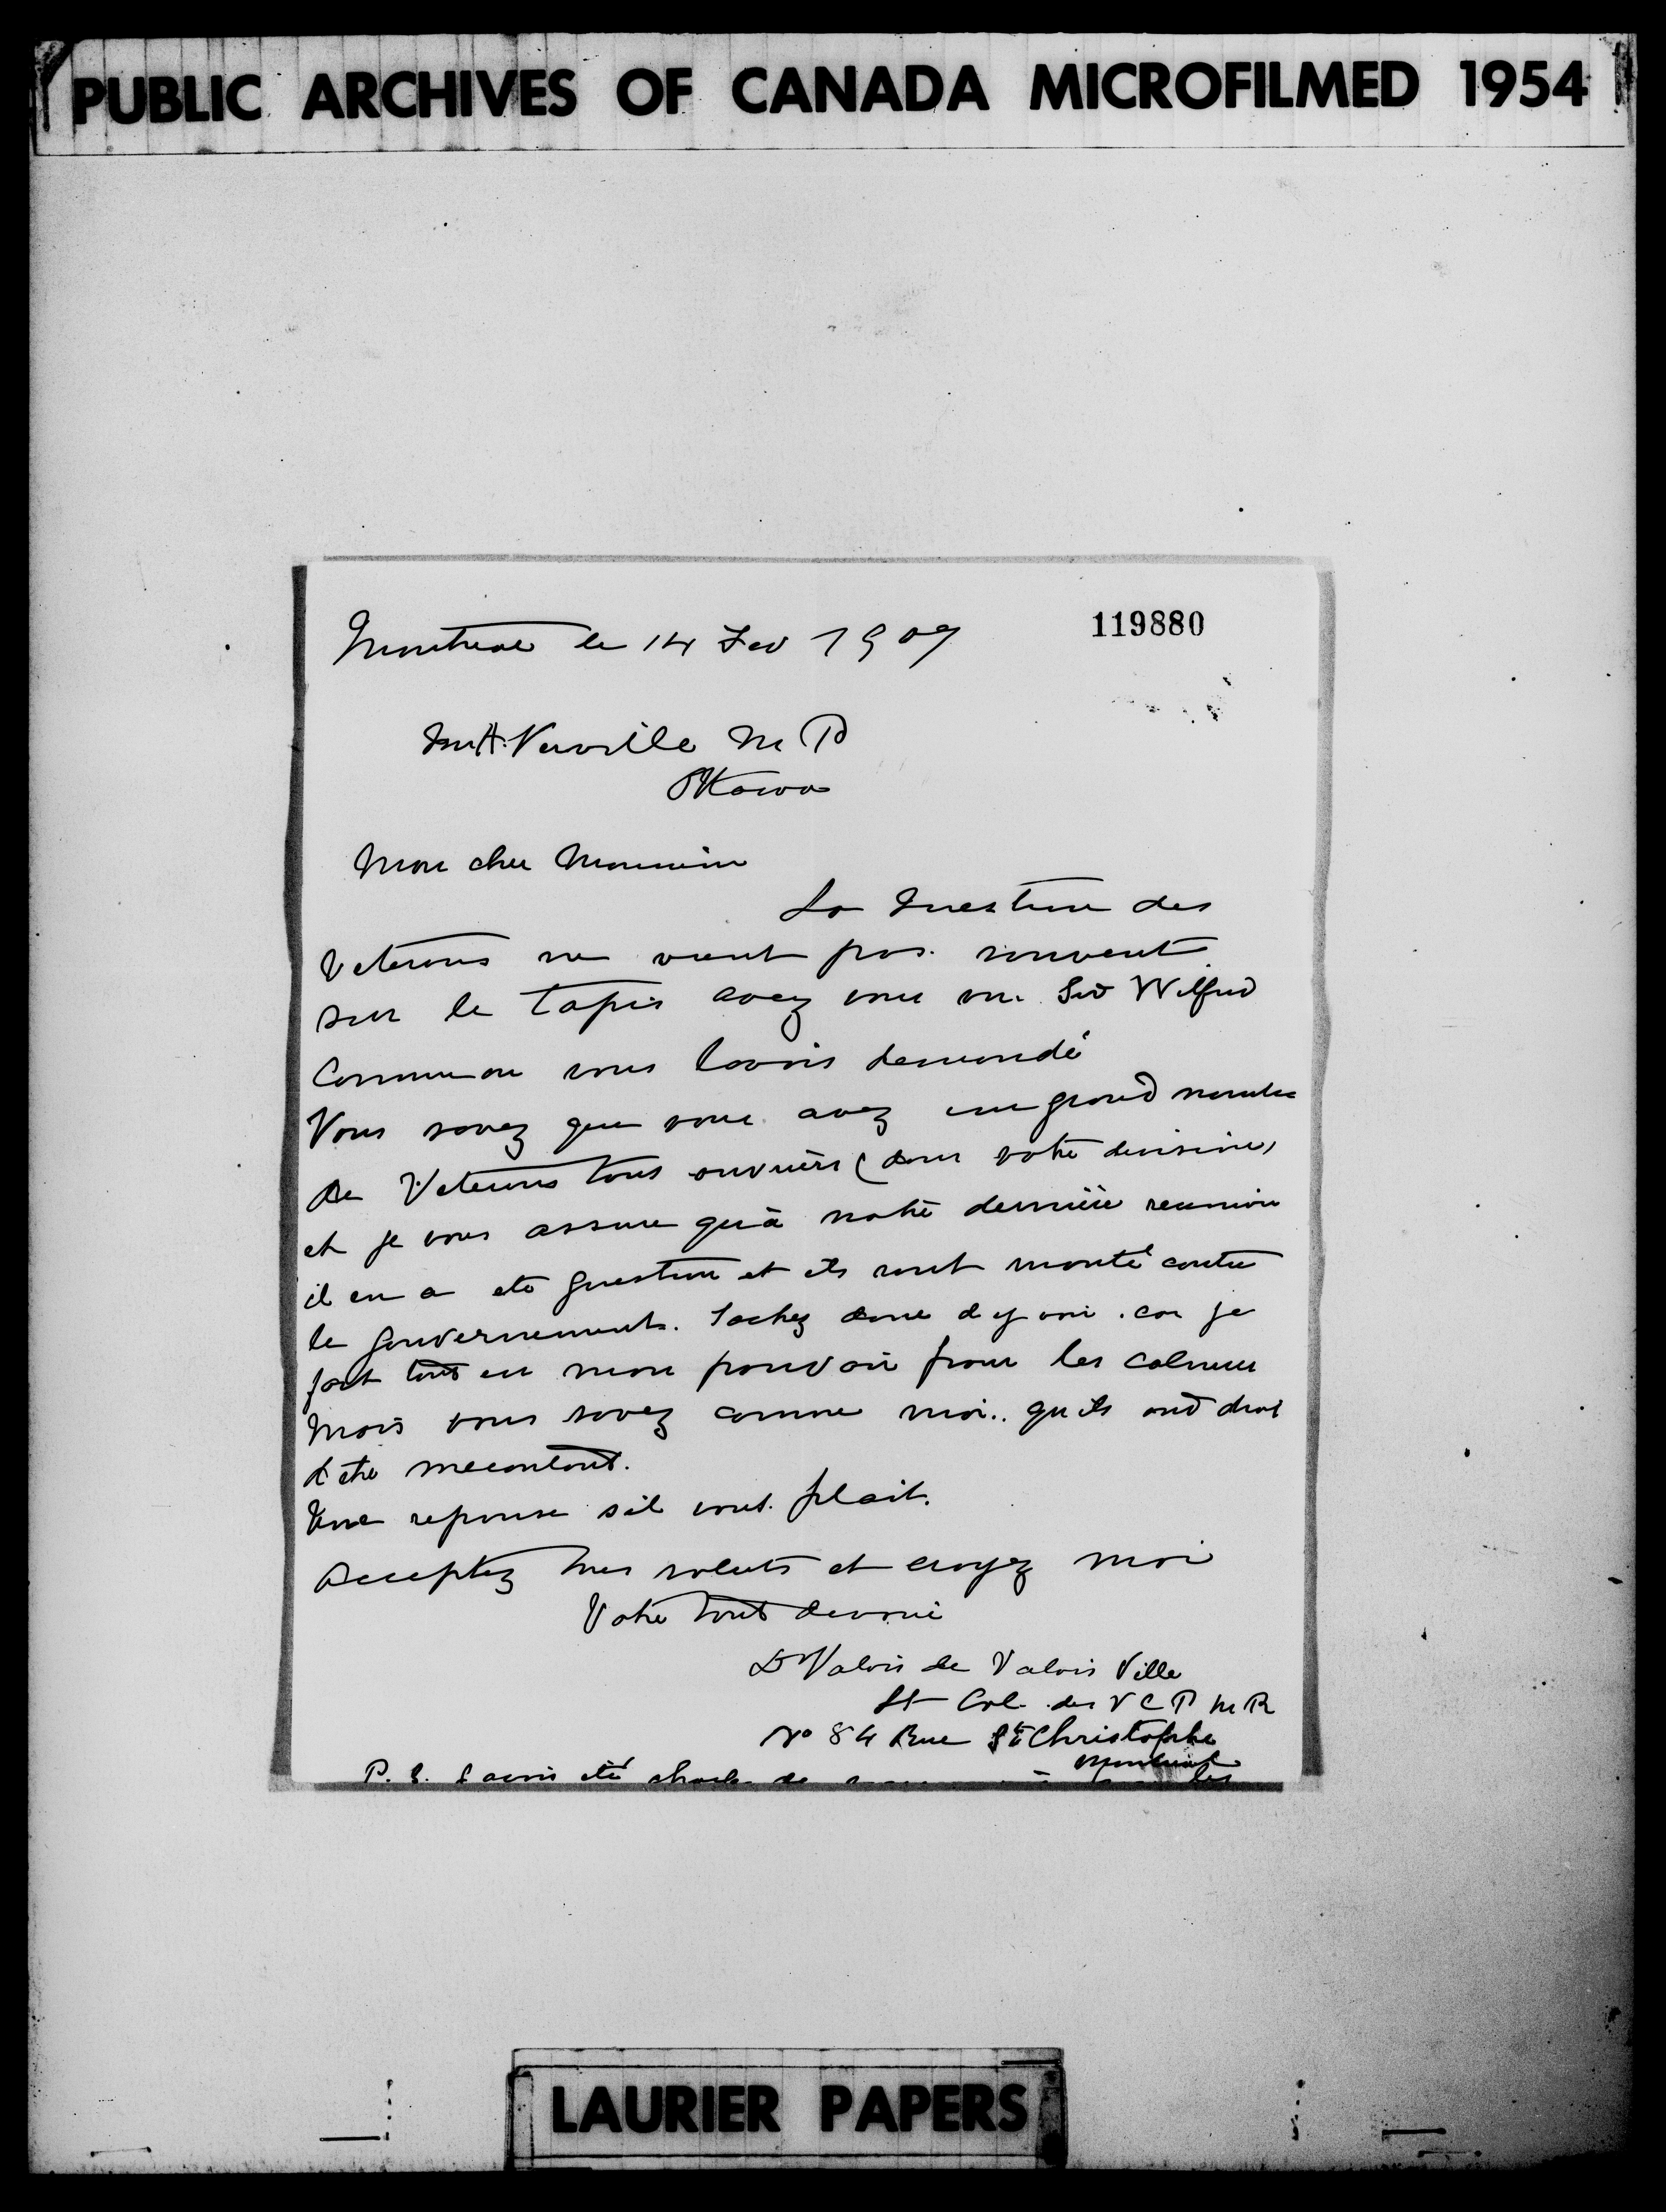 PUBLIC ARCHIVES OF CANADA MICROFILMED 1954
119880
Montreal le 14 Fev 1907
Mr A. Verville M P
Ottawa
Mon cher Monsieur
La question des
Veterans ne vient pas souvent
sur le tapis avez vous vu Sir Wilfrid
Comme on vous l'avais demandé
Vous savez que vous avez un grand nombre
de Veterans tous ouvriers (dans votre division)
et je vous assure qu'à notre dernière reunion
il en a ete question et ils sont monté contre
le gouvernement. Tachez donc d y voir. car je
fait tout en mon pouvoir pour les calmer
Mais vous savez comme moi.. qu ils ont droit
d'etre mecontent.
Une reponse s'il vous plait.
Acceptez mes saluts et croyez moi
Votre tout devoué
Dr Valois de Valois Ville
Lt Col. des V C P M R
No 84 Rue St Christophe
Montreal
P. S. J avais eté de les
LAURIER PAPERS